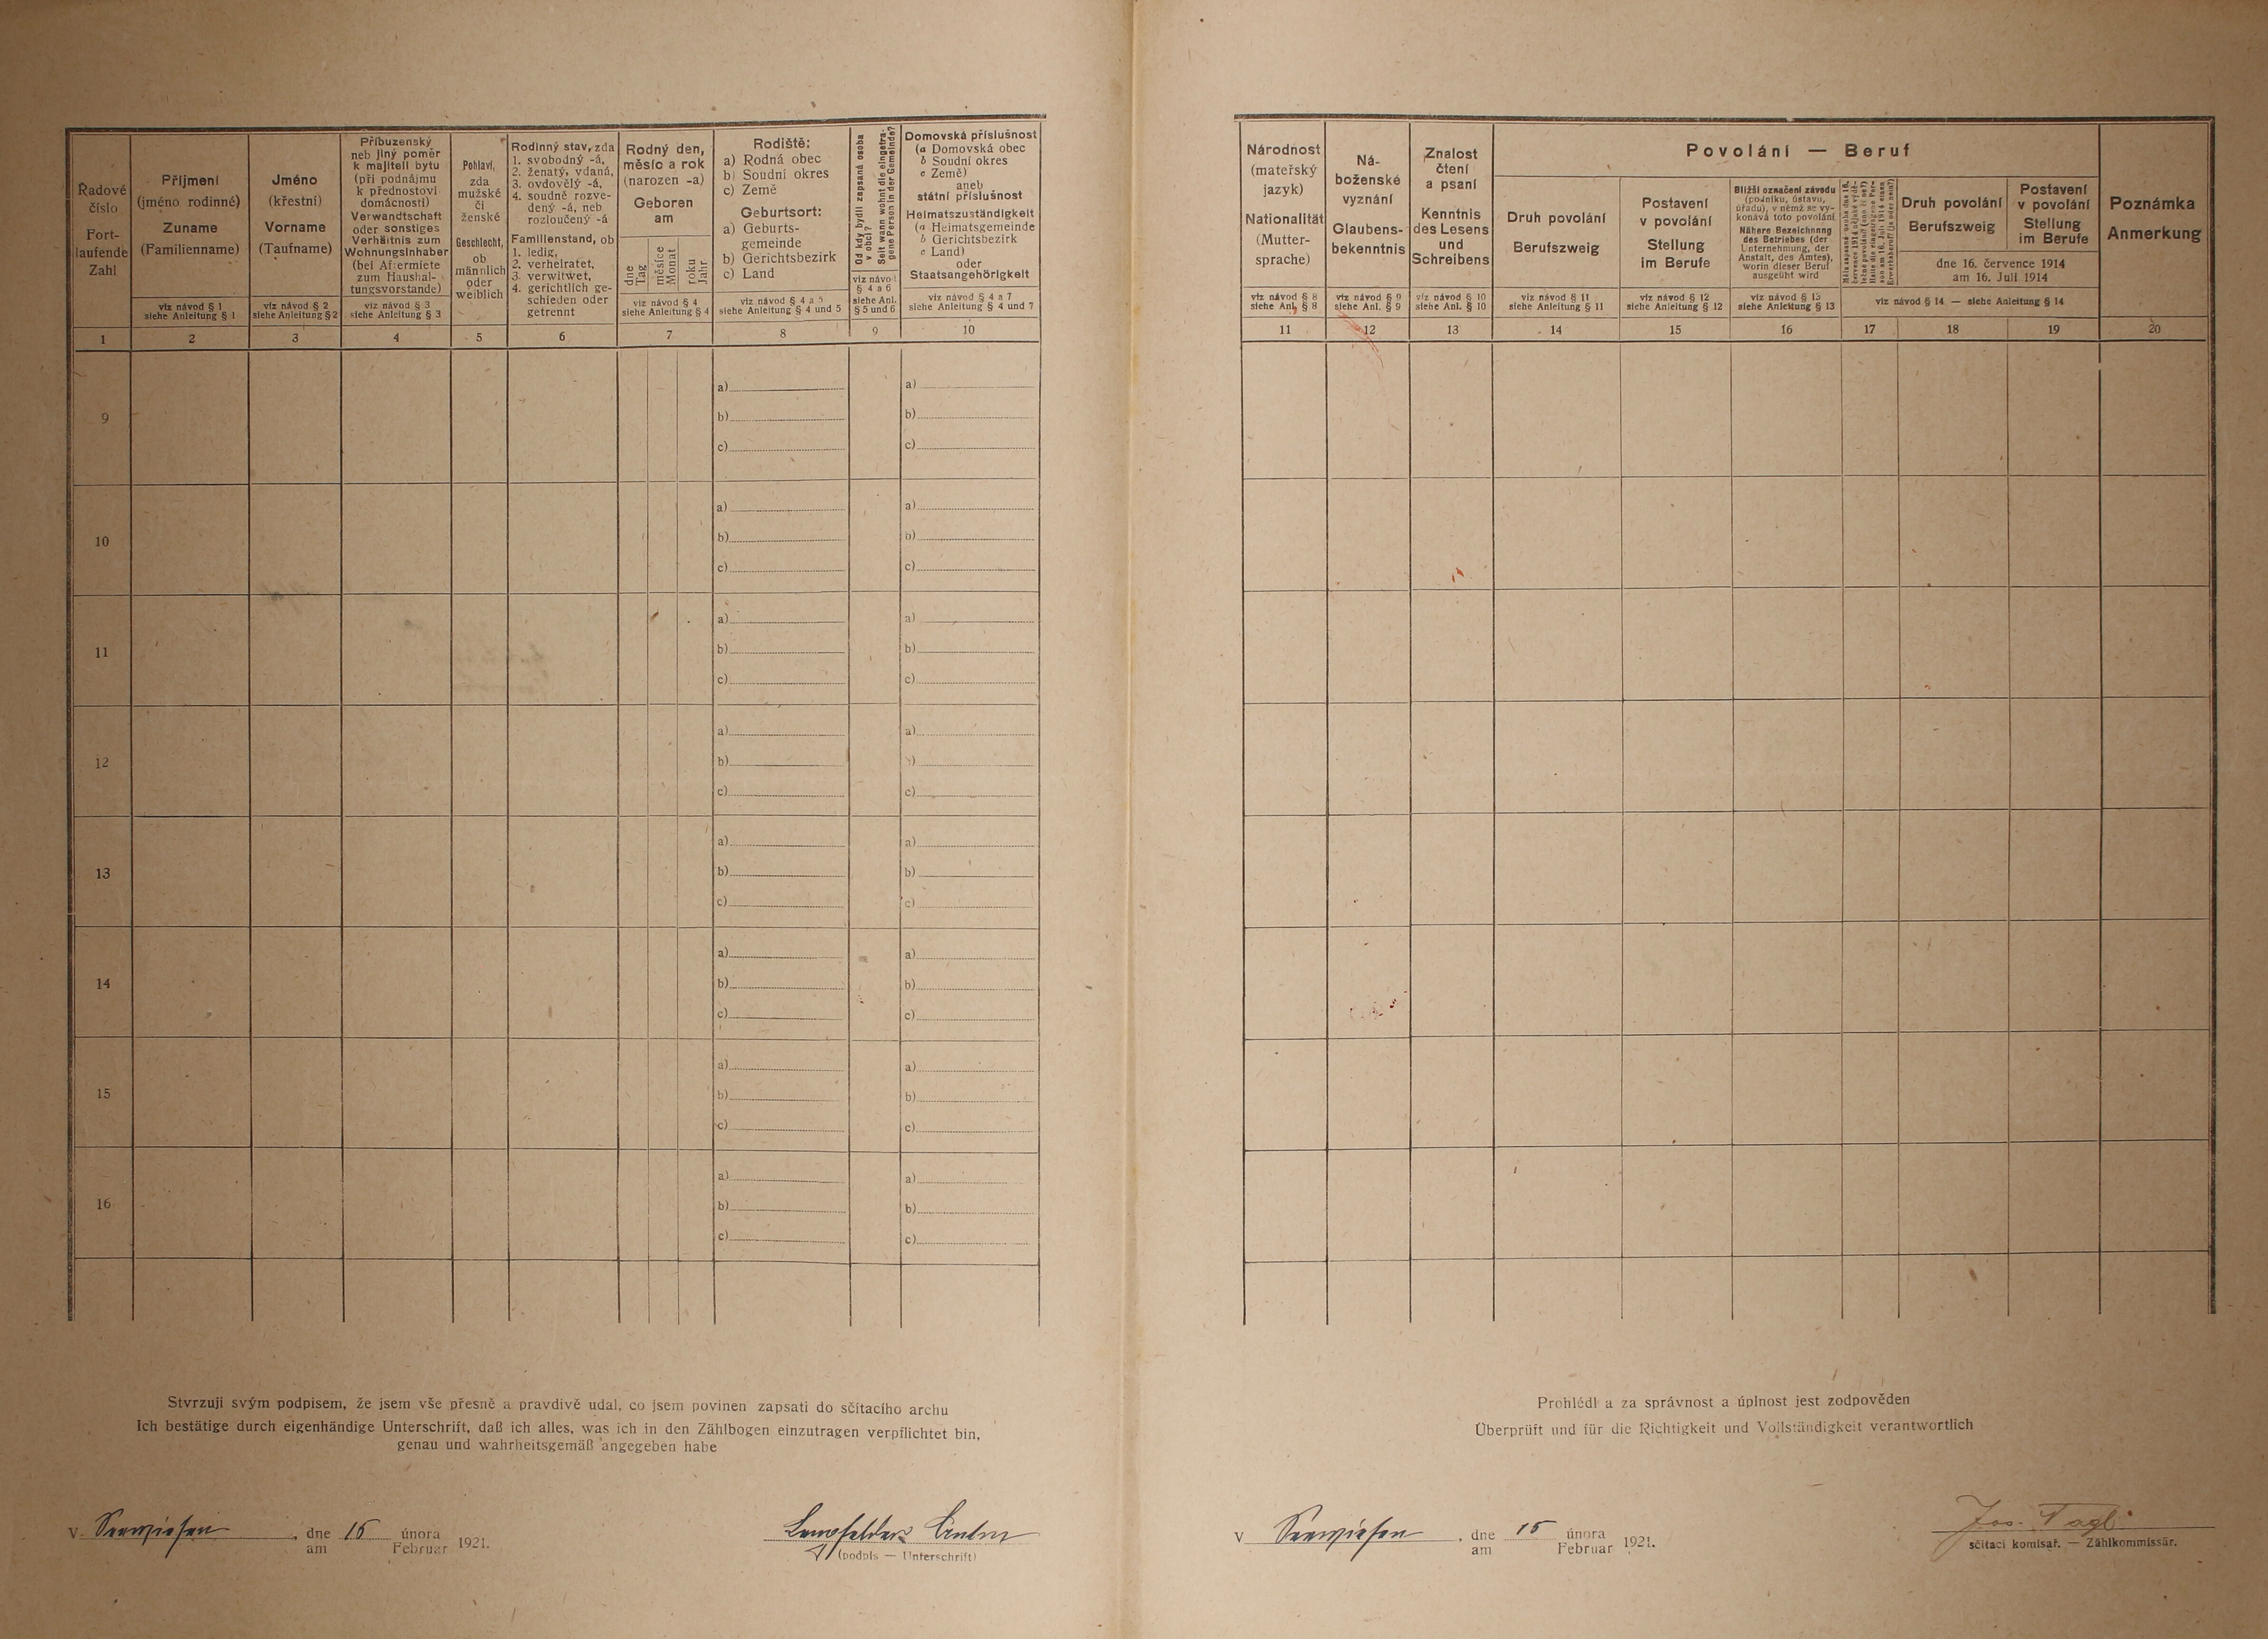 Řadové
číslo
Fort-
laufende
Zahl
Příjmení
(jméno rodinné)
Zuname
(Familienname)
viz návod § 1
siehe Anleitung § 1
Jméno
(křestní)
Vorname
(Taufname)
viz návod § 2
siehe Anleitung § 2
Příbuzenský
neb jiný poměr
k majiteli bytu
(při podnájmu
k přednostovi
domácnosti)
Verwandtschaft
oder sonstiges
Verhältnis zum
Wohnungsinhaber
(bei Aftermiete
zum Haushal-
tungsvorstande)
viz návod § 3
siehe Anleitung § 3
Pohlaví,
zda
mužské
či
ženské
Geschlecht,
ob
männlich
oder
weiblich
Rodinný stav, zda
1. svobodný -á,
2. ženatý, vdaná,
3. ovdovělý -á,
4. soudně rozve-
dený -á, neb
rozloučený -á
Familienstand, ob
1. ledig,
2. verheiratet,
3. verwitwet,
4. gerichtlich ge-
schieden oder
getrennt
Rodný den,
měsíc a rok
(narozen -a)
Geboren
am
dne
Tag
měsíce
Monat
roku
Jahr
viz návod § 4
siehe Anleitung § 4
Rodiště:
a) Rodná obec
b) Soudní okres
c) Země
Geburtsort:
a) Geburts-
gemeinde
b) Gerichtsbezirk
c) Land
viz návod § 4 a 5
siehe Anleitung § 4 und 5
Od kdy bydlí zapsaná osoba
v obci?
Seit wann wohnt die eingetra-
gene Person in der Gemeinde?
viz návod
§ 4 a 6
siehe Anl.
§ 5 und 6
Domovská příslušnost
(a Domovská obec
b Soudní okres
c Země)
aneb
státní příslušnost
Heimatszuständigkeit
(a Heimatsgemeinde
b Gerichtsbezirk
c Land)
oder
Staatsangehörigkeit
viz návod § 4 a 7
siehe Anleitung § 4 und 7
1 2 3 4 5 6 7 8 9 10
9
a) a)
b) b)
c) c)
10
a) a)
b) b)
c) c)
11
a) a)
b) b)
c) c)
12
a) a)
b) b)
c) c)
13
a) a)
b) b)
c) c)
14
a) a)
b) b)
c) c)
15
a) a)
b) b)
c) c)
16
a) a)
b) b)
c) c)
Stvrzuji svým podpisem, že jsem vše přesně a pravdivě udal, co jsem povinen zapsati do sčítacího archu
Ich bestätige durch eigenhändige Unterschrift, daß ich alles, was ich in den Zählbogen einzutragen verpflichtet bin,
genau und wahrheitsgemäß angegeben habe
V Seewiesen, dne 15 února 1921.
am Februar
(podpis — Unterschrift)
Národnost
(mateřský
jazyk)
Nationalität
(Mutter-
sprache)
viz návod § 8
siehe Anl. § 8
Ná-
boženské
vyznání
Glaubens-
bekenntnis
viz návod § 9
siehe Anl. § 9
Znalost
čtení
a psaní
Kenntnis
des Lesens
und
Schreibens
viz návod § 10
siehe Anl. § 10
Povolání — Beruf
Druh povolání
Berufszweig
viz návod § 11
siehe Anleitung § 11
Postavení
v povolání
Stellung
im Berufe
viz návod § 12
siehe Anleitung § 12
Bližší označení závodu
(podniku, ústavu,
úřadu), v němž se vy-
konává toto povolání
Nähere Bezeichnung
des Betriebes (der
Unternehmung, der
Anstalt, des Amtes),
worin dieser Beruf
ausgeübt wird
viz návod § 13
siehe Anleitung § 13
Druh povolání
Berufszweig
Postavení
v povolání
Stellung
im Berufe
dne 16. července 1914
am 16. Juli 1914
viz návod § 14 — siehe Anleitung § 14
Poznámka
Anmerkung
11 12 13 14 15 16 17 18 19 20
Prohlédl a za správnost a úplnost jest zodpověden
Überprüft und für die Richtigkeit und Vollständigkeit verantwortlich
V Seewiesen, dne 15 února 1921.
am Februar
sčítací komisař. — Zählkommissär.